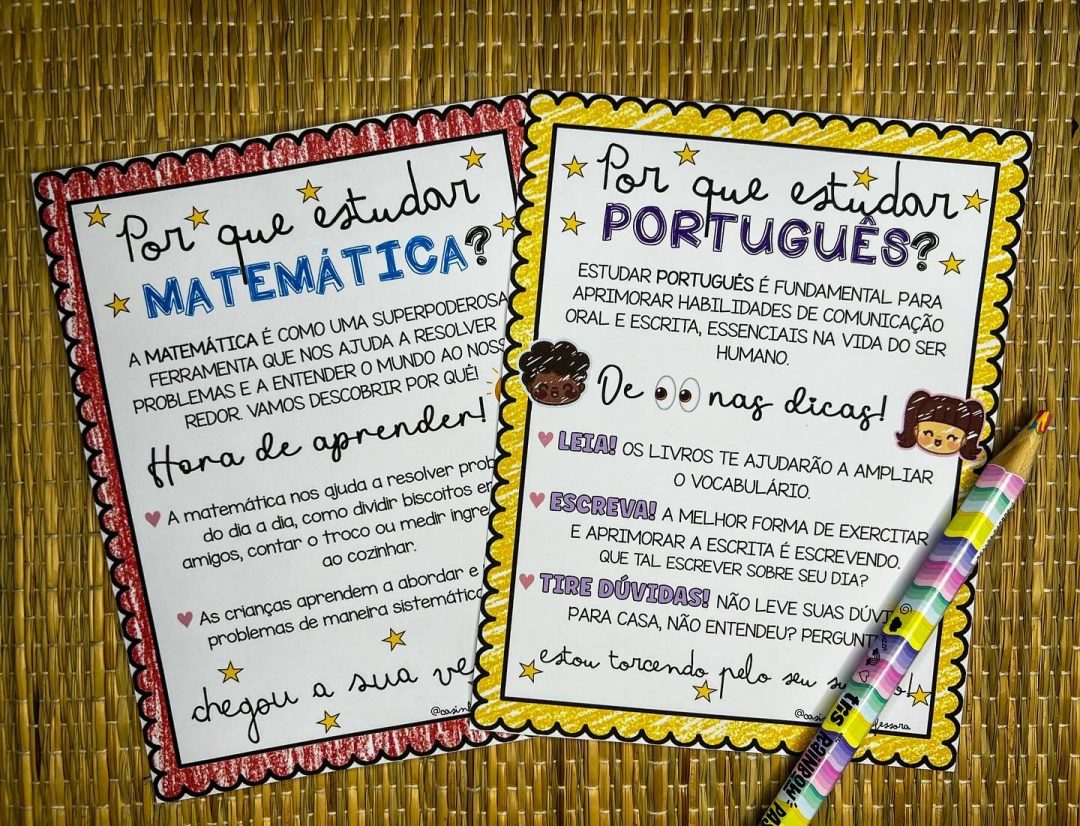 Por que estudar
MATEMÁTICA?
A MATEMÁTICA É COMO UMA SUPERPODEROSA
FERRAMENTA QUE NOS AJUDA A RESOLVER
PROBLEMAS E A ENTENDER O MUNDO AO NOSS
REDOR. VAMOS DESCOBRIR POR QUÊ!
Hora de aprender!
A matemática nos ajuda a resolver prob
do dia a dia, como dividir biscoitos en
amigos, contar o troco ou medir ingre
ao cozinhar.
As crianças aprendem a abordar e
problemas de maneira sistemática
chegou a sua ve
Por que estudar
PORTUGUÊS?
ESTUDAR PORTUGUÊS É FUNDAMENTAL PARA
APRIMORAR HABILIDADES DE COMUNICAÇÃO
ORAL E ESCRITA, ESSENCIAIS NA VIDA DO SER
HUMANO.
De 👀 nas dicas!
LEIA! OS LIVROS TE AJUDARÃO A AMPLIAR
O VOCABULÁRIO.
ESCREVA! A MELHOR FORMA DE EXERCITAR
E APRIMORAR A ESCRITA É ESCREVENDO.
QUE TAL ESCREVER SOBRE SEU DIA?
TIRE DÚVIDAS! NÃO LEVE SUAS DÚVI
PARA CASA, NÃO ENTENDEU? PERGUNT
estou torcendo pelo seu su o!
@casin essora
RAINBOW